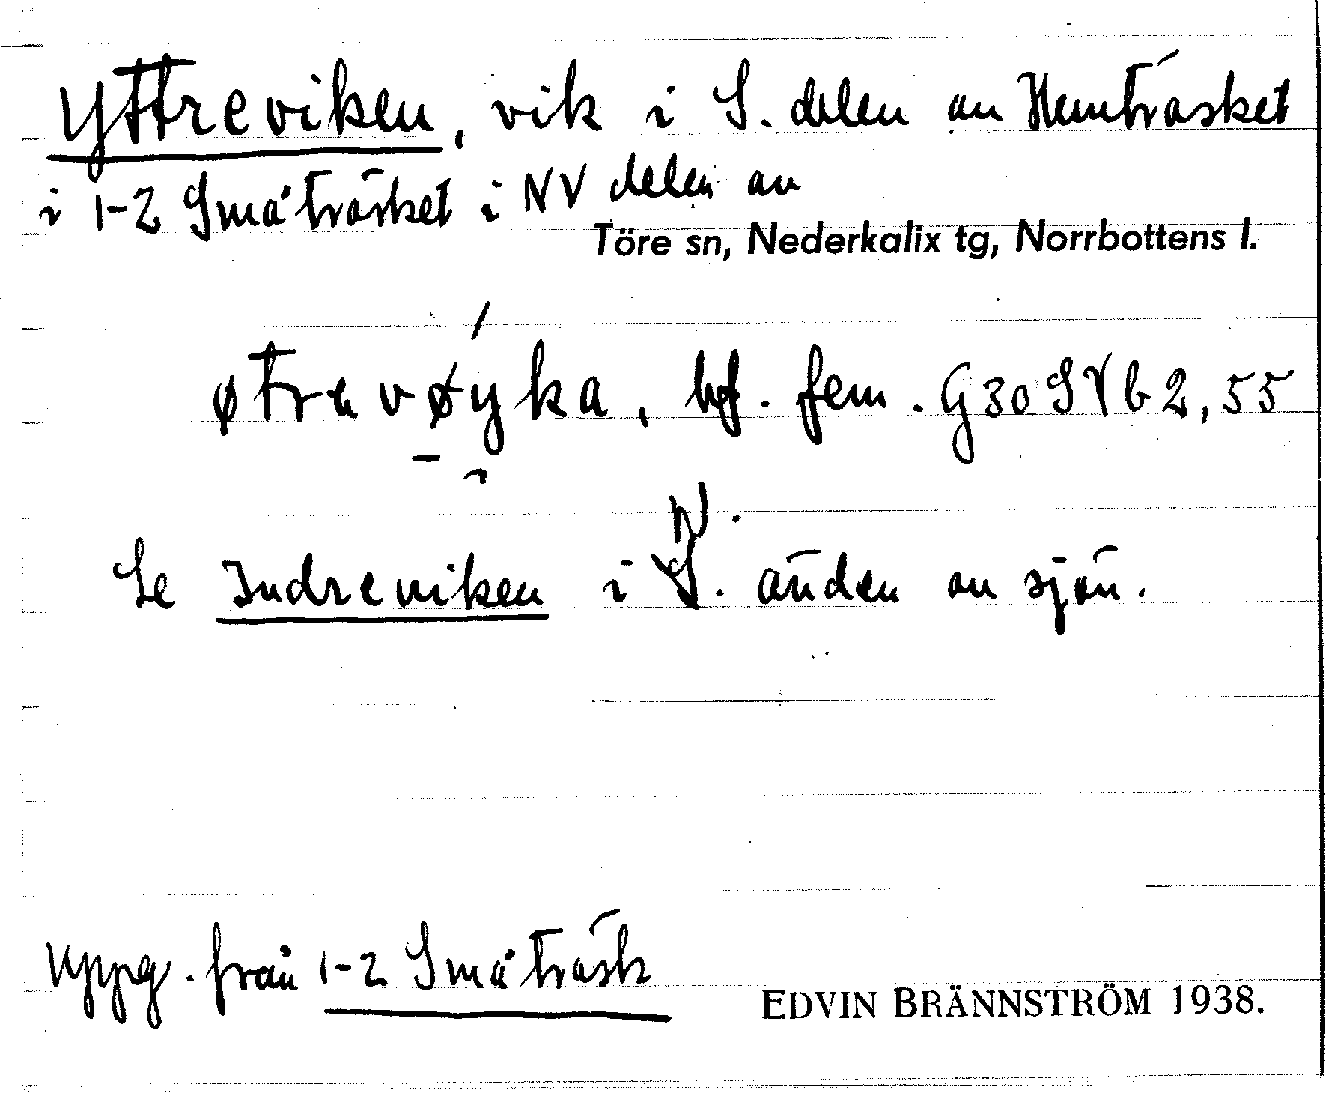 Yttreviken, vik i S. delen av Hemträsket
i 1-2 Småträsket i NV delen av
Töre sn, Nederkalix tg, Norrbottens l.
øtravøyka, bf. fem. G30SVb2,55
Se Indreviken i N. änden av sjön.
Uppg. från 1-2 Småträsk
EDVIN BRÄNNSTRÖM 1938.